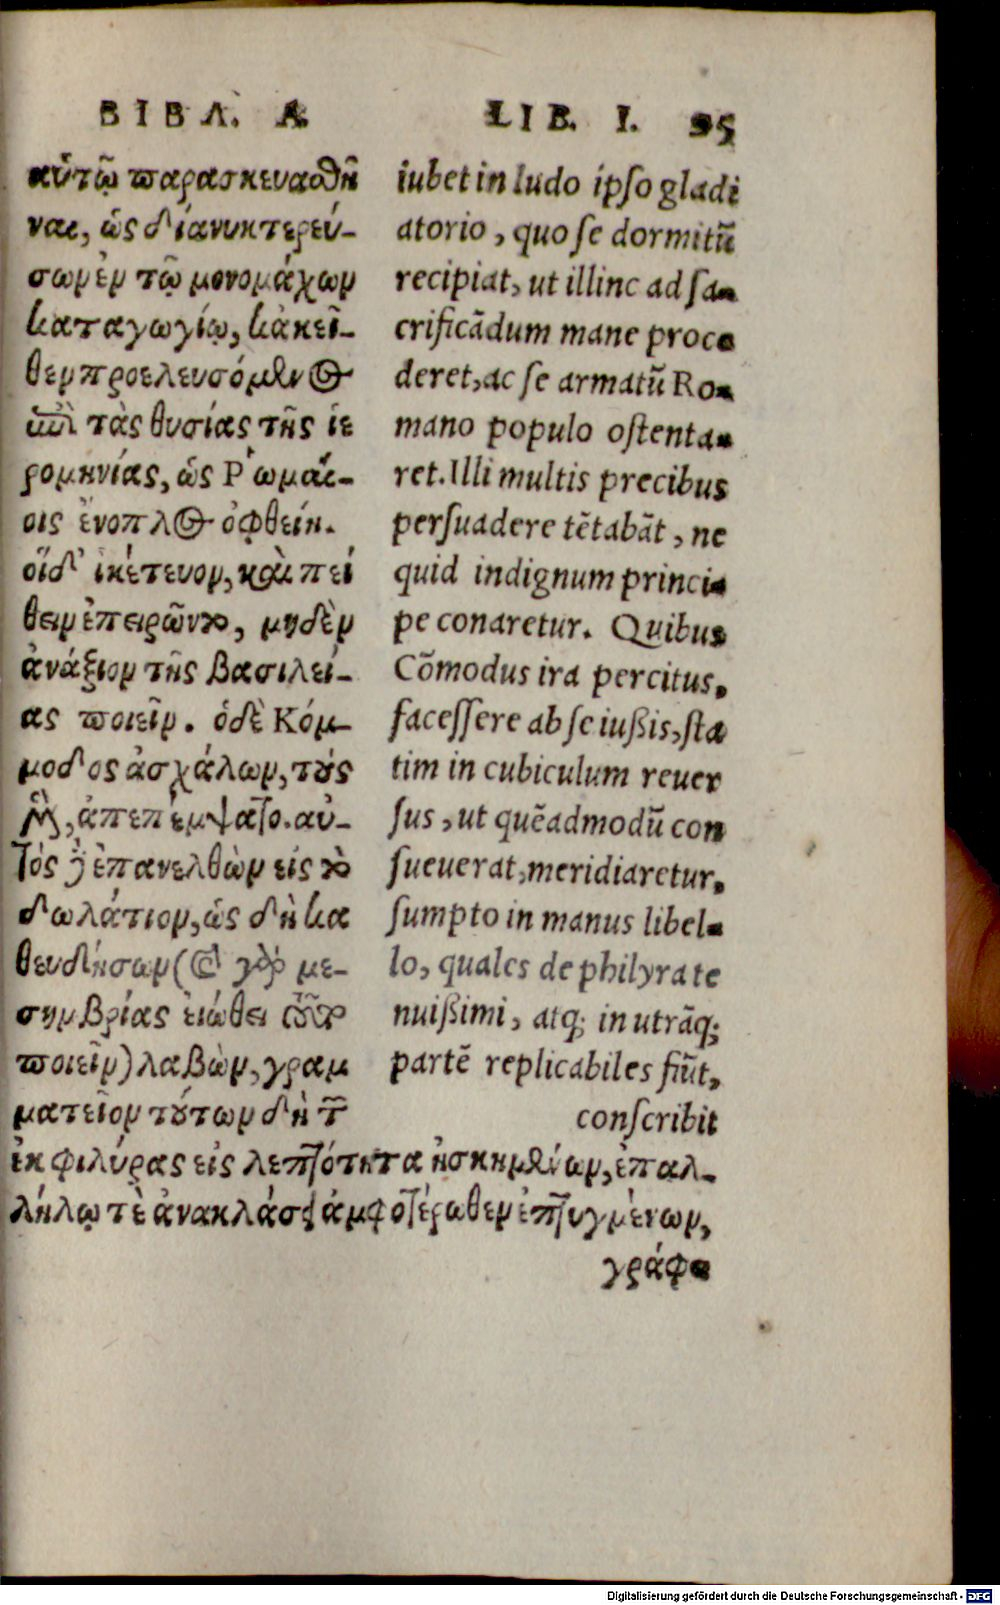 ΒΙΒΛ. Α.
αὑτῷ παρασκευασθῆ
ναι, ὡς διανυκτερεύ-
σων ἐν τῷ μονομάχων
καταγωγίῳ, κἀκεῖ-
θεν προελευσόμενος
ἐπὶ τὰς θυσίας τῆς ἱε
ρομηνίας, ὡς Ῥωμαί-
οις ἔνοπλος ὀφθείη.
οἵδ' ἱκέτευον, καὶ πεί
θειν ἐπειρῶντο, μηδὲν
ἀνάξιον τῆς βασιλεί-
ας ποιεῖν. ὁδὲ Κόμ-
μοδος ἀσχάλων, τοὺς
μὲν, ἀπεπέμψατο. αὐ-
τός δὲ ἐπανελθὼν εἰς τὸ
δωμάτιον, ὡς δὴ κα
θευδήσων (καὶ γὰρ με-
σημβρίας εἰώθει τοῦτο
ποιεῖν) λαβὼν, γραμ
ματεῖον τούτων δὴ τῶν
ἐκ φιλύρας εἰς λεπτότητα ἠσκημένων, ἐπαλ-
λήλῳ τὲ ἀνακλάσει ἀμφοτέρωθεν ἐπτυγμένων,
γράφει
LIB. I. 95
iubet in ludo ipſo gladi
atorio, quo ſe dormitū
recipiat, ut illinc ad ſa-
crificādum mane proce
deret, ac ſe armatū Ro-
mano populo oſtenta-
ret. Illi multis precibus
perſuadere tētabāt, ne
quid indignum princi-
pe conaretur. Quibus
Cōmodus ira percitus,
faceſſere ab ſe iußis, ſta
tim in cubiculum reuer
ſus, ut quēadmodū con
ſueuerat, meridiaretur,
ſumpto in manus libel-
lo, quales de philyra te
nuißimi, atq; in utrāq;
partē replicabiles fiūt,
conſcribit
Digitalisierung gefördert durch die Deutsche Forschungsgemeinschaft - DFG